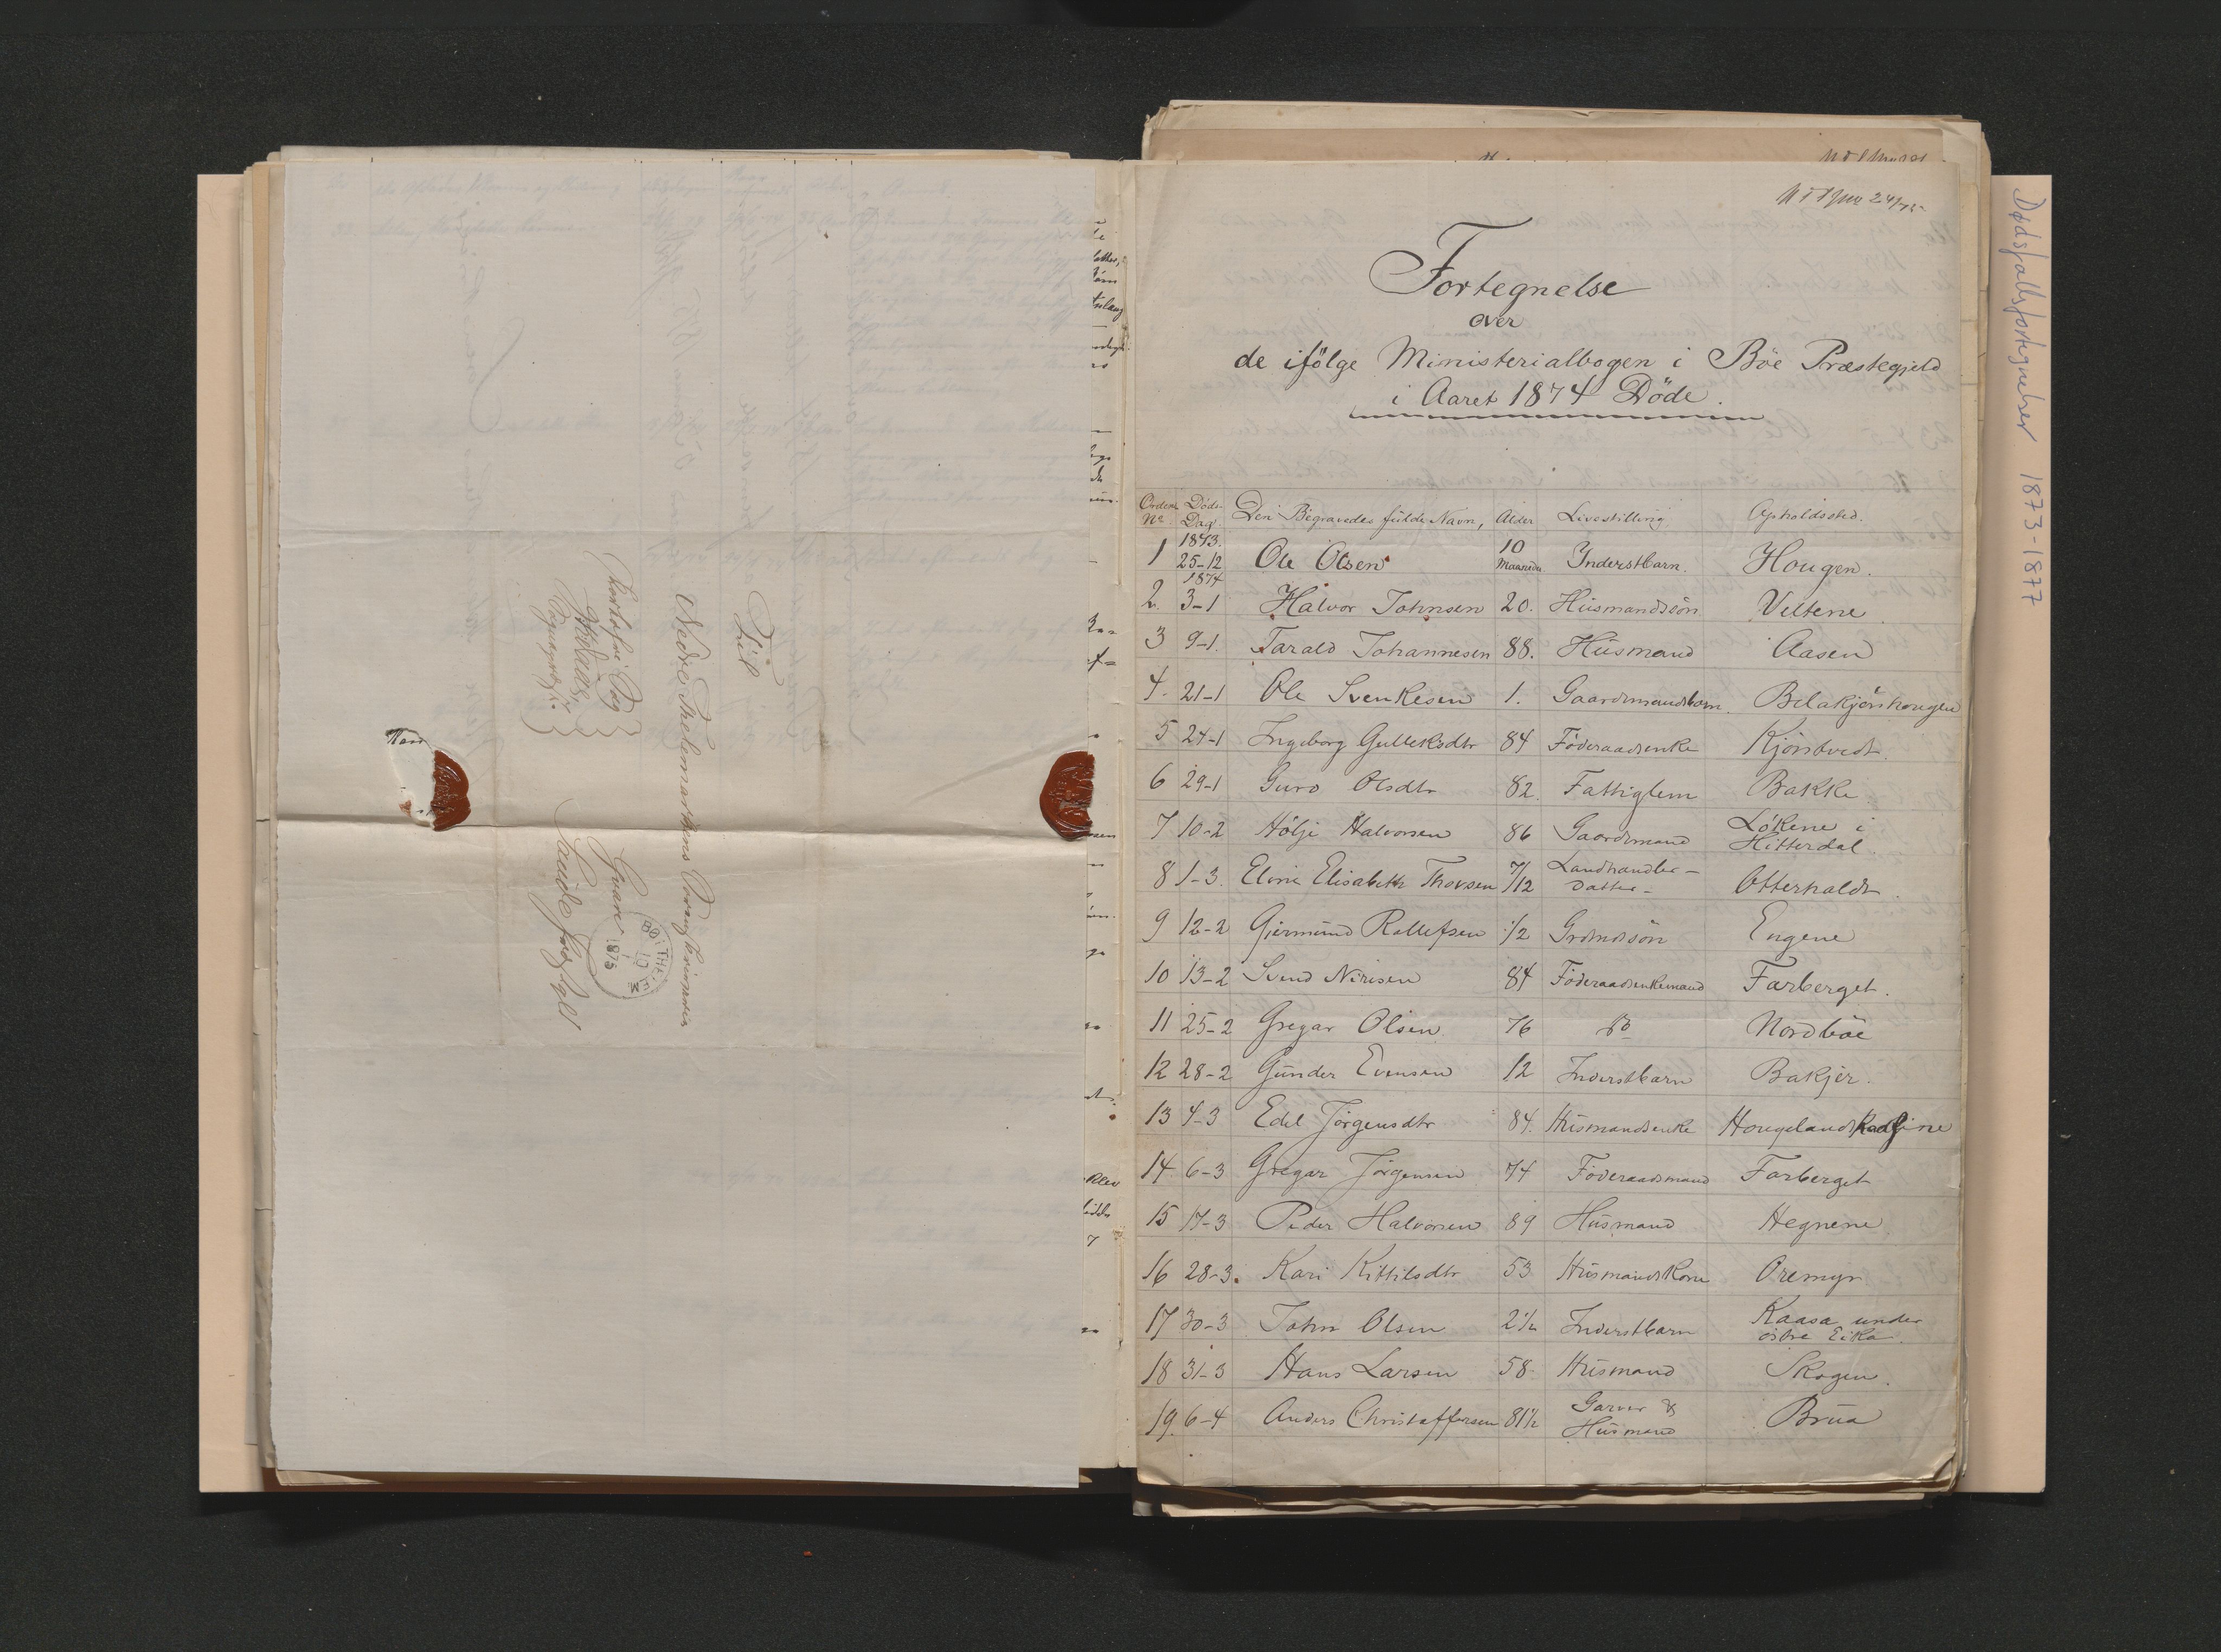 Til
Nedre Thelemarkens Sorenskriverie
Gvarv
Saude Præstegjeld
BÖ I THEM.
1875
Fortegnelse
over
de ifölge Ministerialbogen i Böe Præstegjeld
i Aaret 1874 Döde.
Ordens No. Döds Dag. Den Begravedes fulde Navn, Alder Livsstilling. Opholdssted.
1 1873. 25-12 Ole Olsen 10 Maaneder Inderstbarn. Hougen.
2. 1874 3-1 Halvor Johnsen 20. Husmandssön Veltene.
3 9-1. Tarald Johannesen 88. Husmand Aasen
4. 21-1 Ole Svenkesen 1. Gaardmandsbarn. Belakjönhougen
5 24-1 Ingeborg Gulleksdtr 84 Föderaadsenke Kjönbvedt.
6 29-1 Guro Olsdtr 82. Fattiglem Bakke
7 10-2 Hölje Halvorsen 86 Gaardmand Lökene i Hitterdal.
8 1-3. Eline Elisabeth Thovsen 7/12 Landhandler-Datter- Otterholdt.
9 12-2 Gjermund Rollefsen 1/2 Grdmdssön Engene
10 13-2 Svend Nirisen 84 Föderaadsenkemand Farberget.
11 25-2 Gregar Olsen 76 do Nordböe
12 28-2 Gunder Evensen 12 Inderstbarn Bakjer.
13 4-3 Edel Jörgensdtr 84. Husmandsenke Hougelandskaasine
14 6-3 Gregar Jörgensen 74 Föderaadsmand Farberget
15 17-3 Peder Halvorsen 89 Husmand Hegnene
16 28-3. Kari Kittilsdtr 53 Husmandskone Oremyr
17 30-3 John Olsen 2 1/2 Inderstbarn Kaasa under östre Eika.
18 31-3 Hans Larsen 58- Husmand Skogen.
19. 6-4 Anders Christoffersen 81 1/2 Garver & Husmand Brua
Dødsfallsfortegnelser 1873-1877